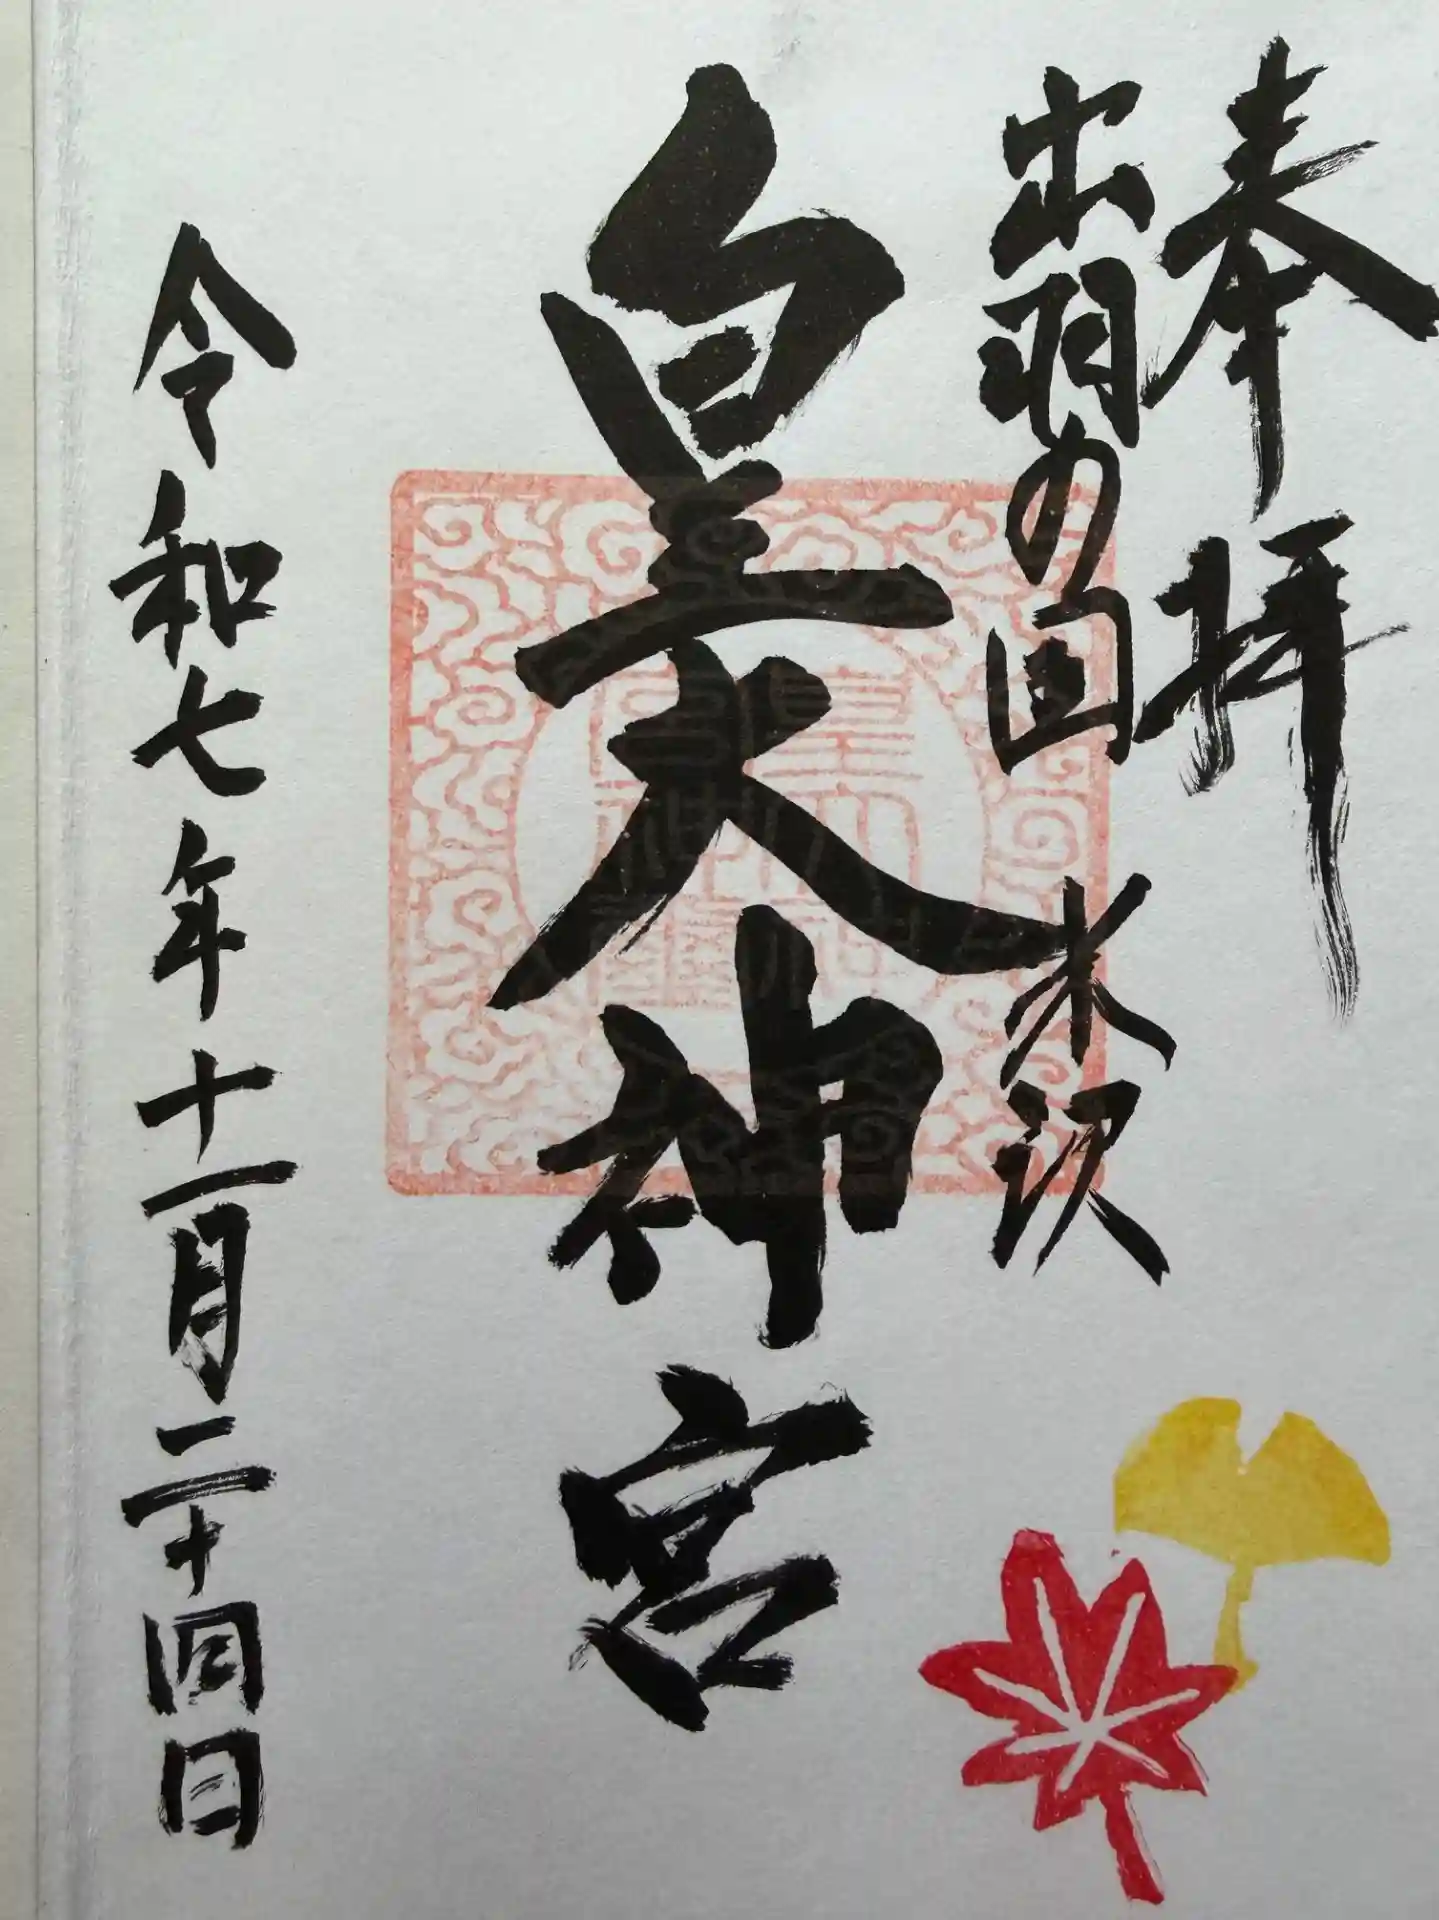 奉拝
出羽の国 米沢
皇大神宮
令和七年十一月二十四日